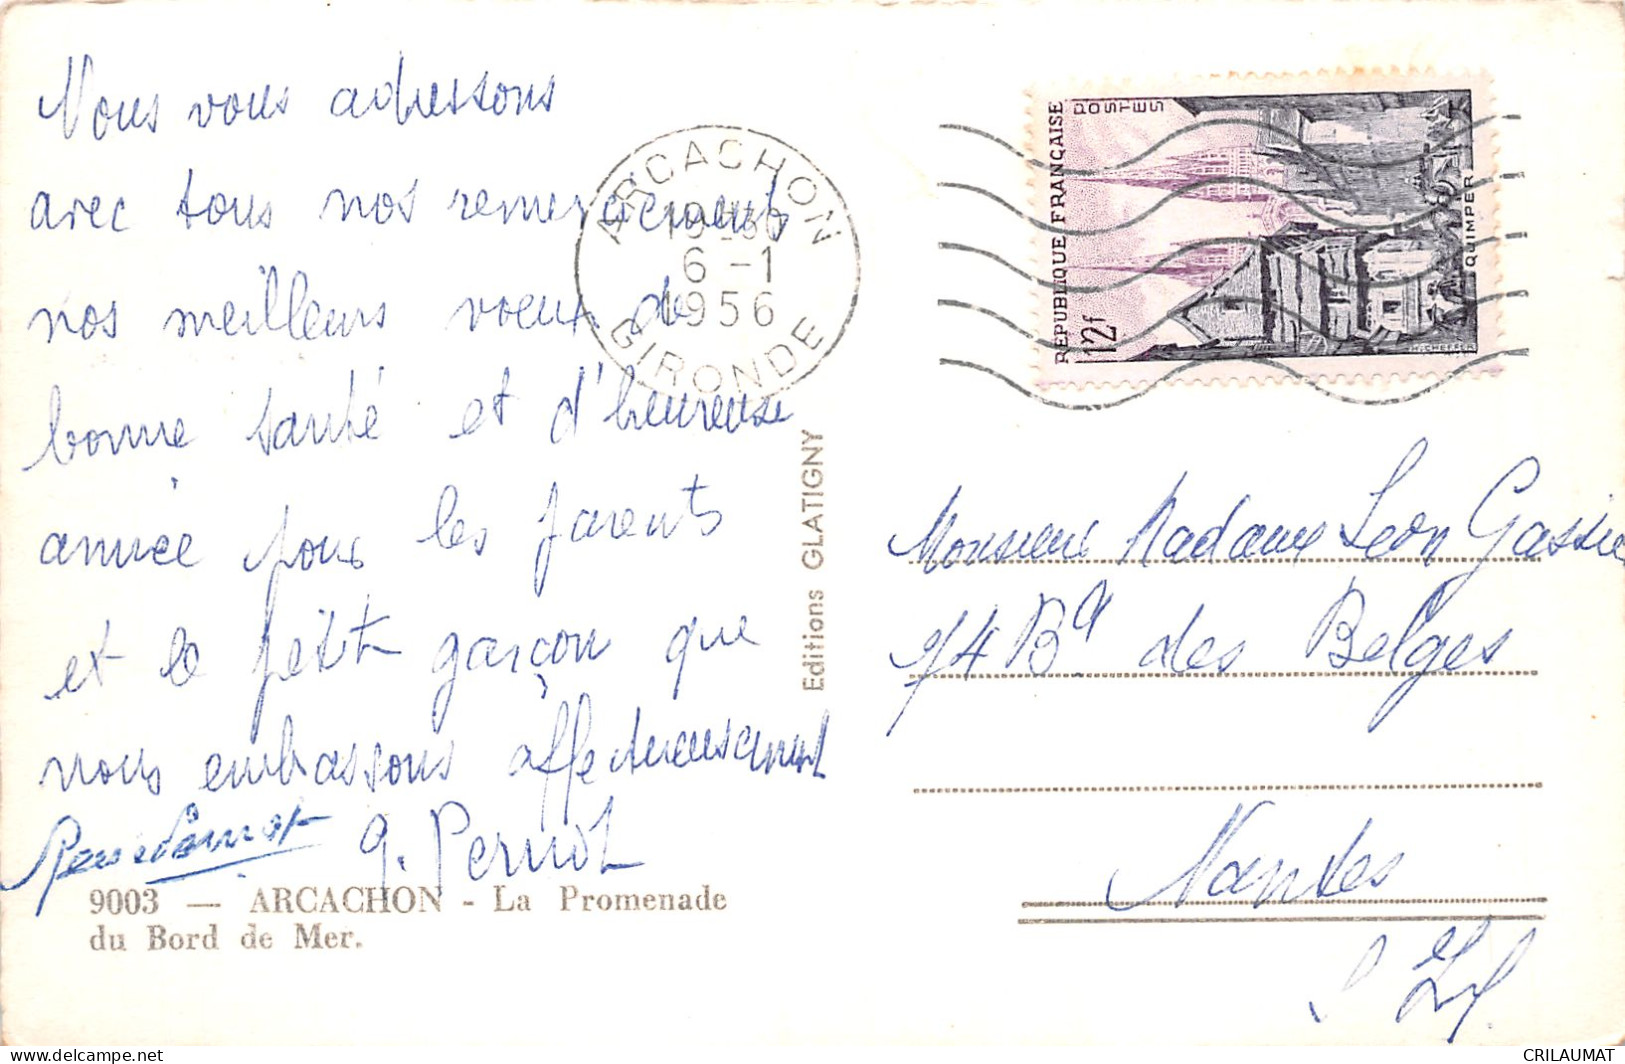 Nous vous adressons
avec tous nos remerciements
nos meilleurs voeux de
bonne santé et d'heureuse
année pour les parents
et le petit garçon que
nous embrassons affectueusement
G. Pernot
9003 — ARCACHON - La Promenade
du Bord de Mer.
Editions GLATIGNY
ARCACHON
6 -1
1956
GIRONDE
REPUBLIQUE FRANÇAISE
POSTES
12f
QUIMPER
Monsieur Madame Leon Gassie
74 Bd des Belges
Nantes
CRILAUMAT
delcampe.net